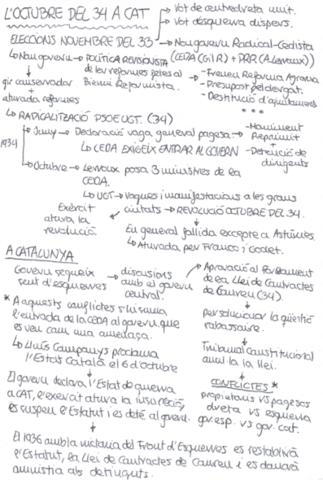 L'OCTUBRE DEL 34 A CAT
→ Vot de centredreta unit.
→ Vot d'esquerra dispers.
ELECCIONS NOVEMBRE DEL 33 → Nou govern Radical-Cedista
(CEDA (Gil R) + PRR (A.Lerroux))
↳ Nou govern → POLÍTICA REVISIONISTA
de les reformes fetes al
Bienni Reformista.
→ Frenen Reforma Agrària
→ Pressupost
→ Destitució d'ajuntaments
gir conservador
+
aturada reformes
↳ RADICALITZACIÓ PSOE UGT (34)
1934
→ Juny → Declaració vaga general pagesa → Moviment
Reprimit
↳ CEDA EXIGEIX ENTRAR AL GOVERN
→ Detenció de
dirigents
→ Octubre → Lerroux posa 3 ministres de la
CEDA.
↳ UGT → Vagues i manifestacions a les grans
ciutats → REVOLUCIÓ OCTUBRE DEL 34.
Exèrcit
atura la
revolució
En general fallida excepte a Astúries
↳ Aturada per Franco i Godet.
A CATALUNYA
Govern segueix
sent d'esquerres
→ discussions
amb el govern
central.
→ Aprovació al Parlament
de la Llei de Contractes
de Conreu (34).
per solucionar la qüestió
rabassaire.
Tribunal Constitucional
anul·la la llei.
CONFLICTES *
propietaris vs pagesos
dreta vs esquerra
gov esp. vs gov. cat.
* A aquests conflictes s'hi suma
l'entrada de la CEDA al govern, que
es veu com una amenaça.
↳ Lluís Companys proclama
l'Estat Català el 6 d'octubre
El govern declara l'Estat de guerra
a CAT, l'exèrcit atura la insurrecció,
es suspèn l'Estatut i es deté al govern.
El 1936 amb la victòria del Front d'Esquerres es restableix
l'Estatut, la Llei de Contractes de Conreu i es dóna
amnistia als detinguts.